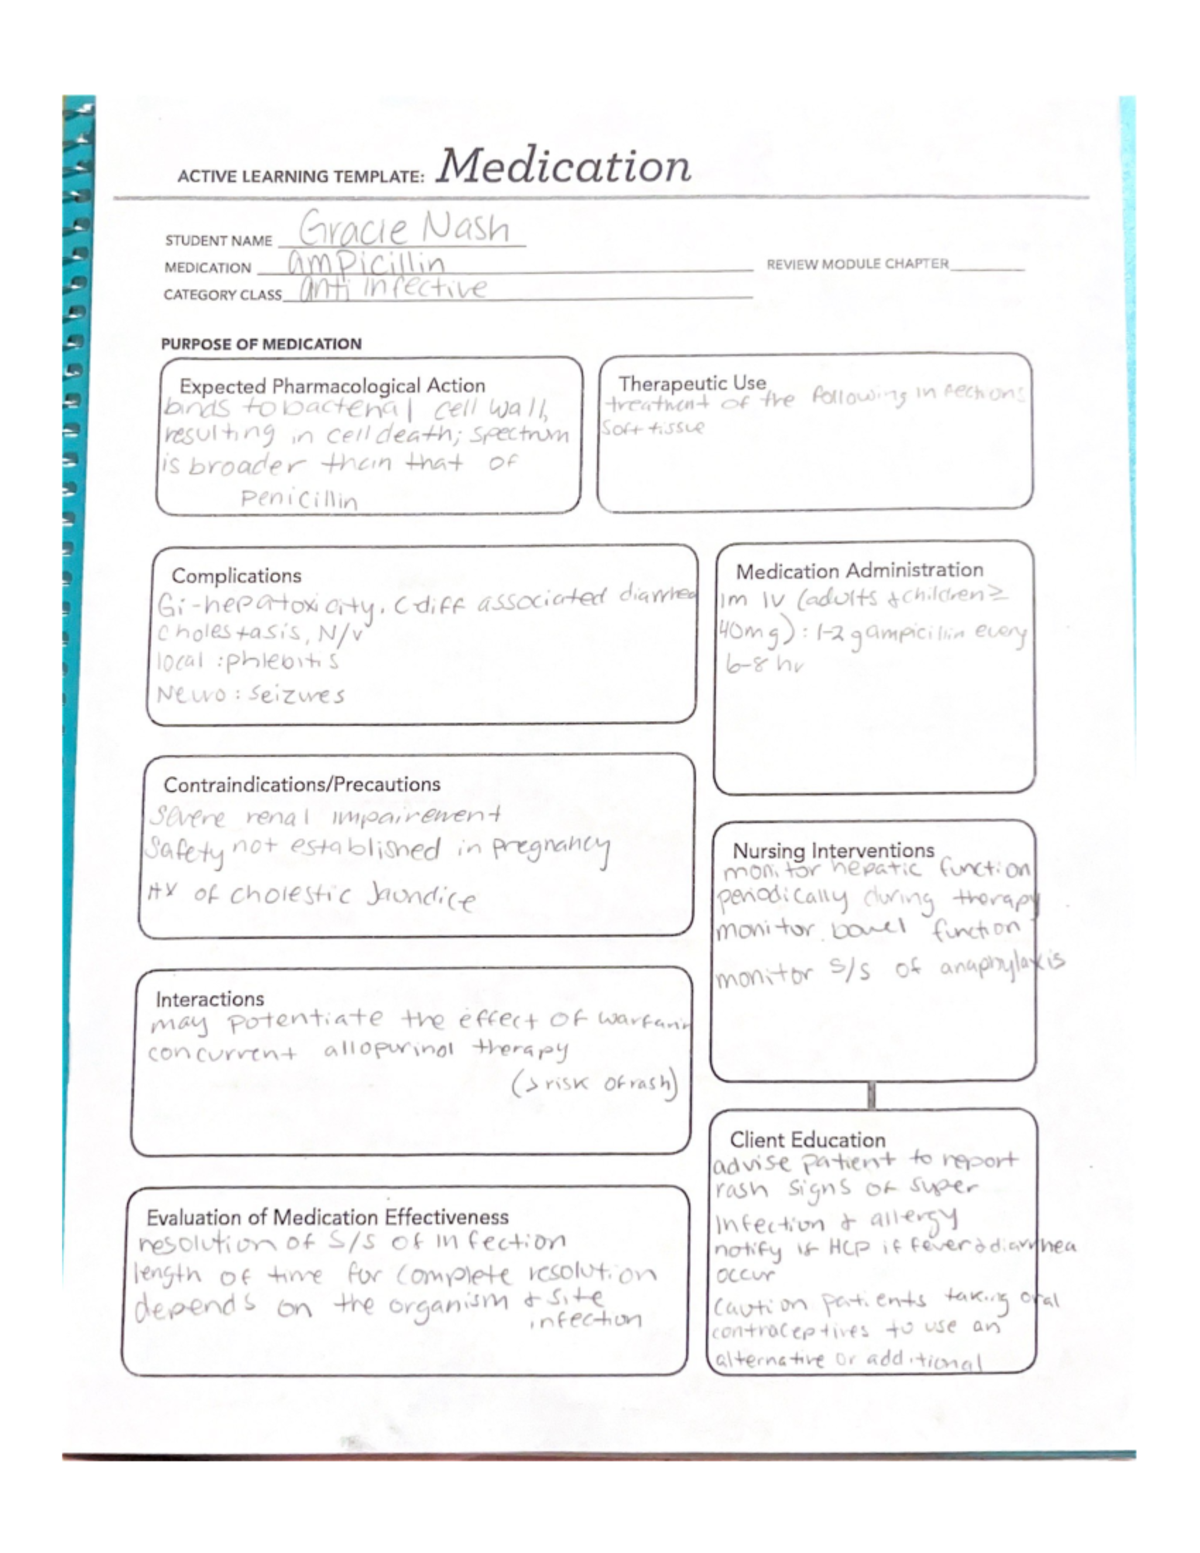 ACTIVE LEARNING TEMPLATE: Medication
STUDENT NAME Gracie Nash
MEDICATION ampicillin
REVIEW MODULE CHAPTER
CATEGORY CLASS anti infective
PURPOSE OF MEDICATION
Expected Pharmacological Action
binds to bacterial cell wall,
resulting in cell death; spectrum
is broader than that of
penicillin
Therapeutic Use
treatment of the following infections
soft tissue
Complications
Gi-hepatoxicity, C diff associated diarrhea
cholestasis, N/V
local: phlebitis
Neuro: seizures
Medication Administration
Im IV (adults & children ≥
40mg): 1-2 g ampicillin every
6-8 hr
Contraindications/Precautions
Severe renal impairement
Safety not established in pregnancy
HX of cholestic Jaundice
Nursing Interventions
monitor hepatic function
periodically during therapy
monitor bowel function
monitor s/s of anaphylaxis
Interactions
may potentiate the effect of warfarin
concurrent allopurinol therapy
(> risk of rash)
Client Education
advise patient to report
rash signs of super
infection & allergy
notify if HCP if fever & diarrhea
occur
caution patients taking oral
contraceptives to use an
alternative or additional
Evaluation of Medication Effectiveness
resolution of S/S of infection
length of time for complete resolution
depends on the organism & site
infection